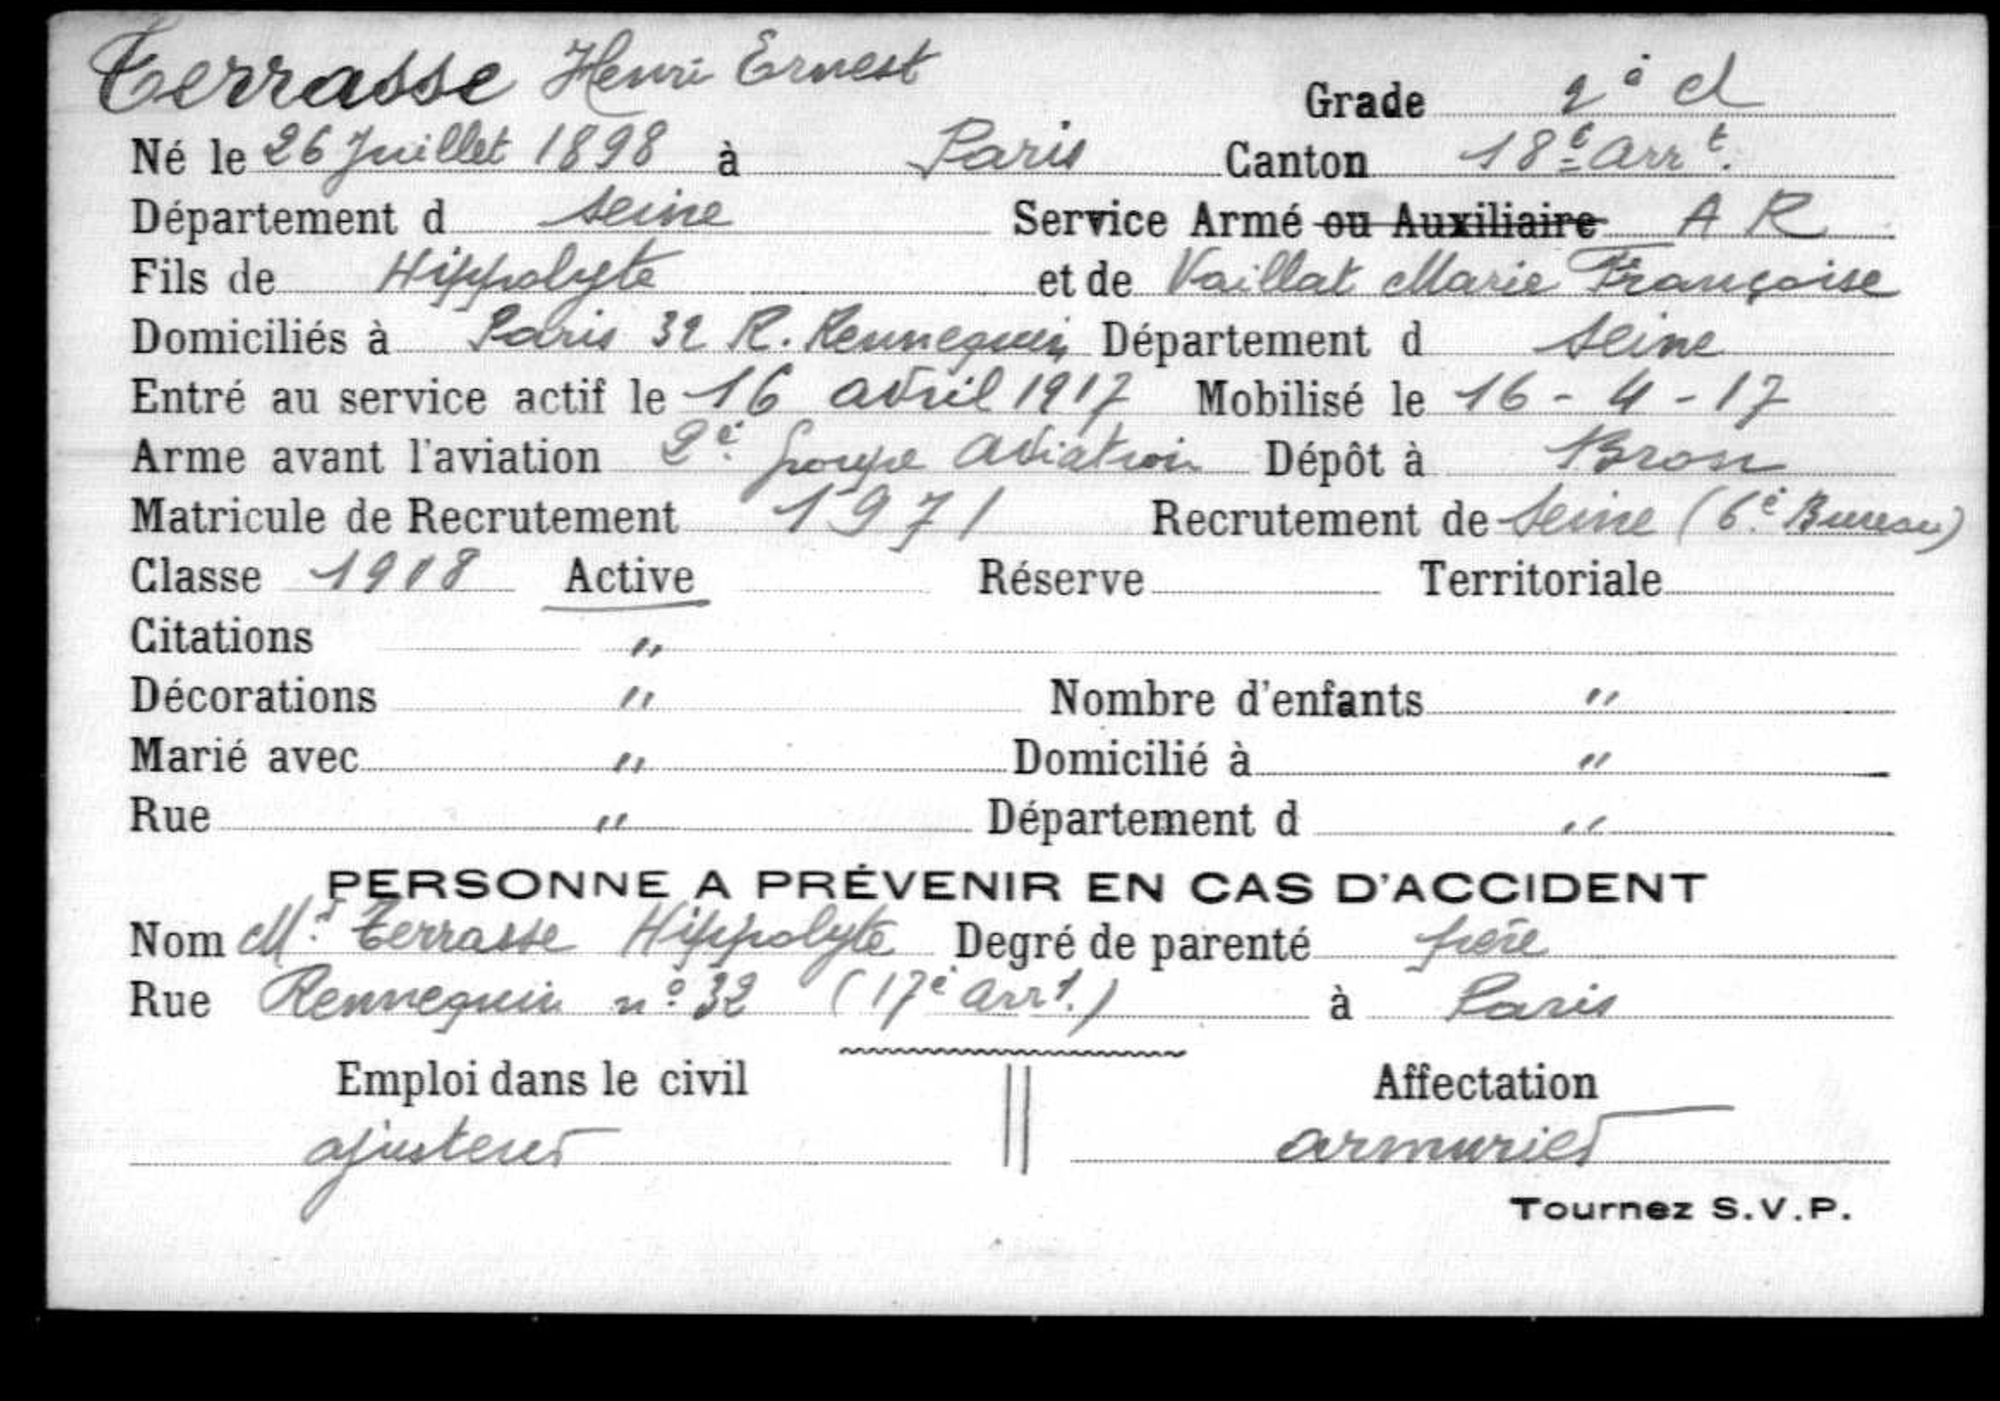 Terrasse Henri Ernest Grade 2e cl
Né le 26 Juillet 1898 à Paris Canton 18e arrt.
Département d Seine Service Armé ou Auxiliaire A R
Fils de Hippolyte et de Vaillat Marie Françoise
Domiciliés à Paris 32 R. Rennequin Département d Seine
Entré au service actif le 16 avril 1917 Mobilisé le 16-4-17
Arme avant l'aviation 2e groupe aviation Dépôt à Bron
Matricule de Recrutement 1971 Recrutement de Seine (6e Bureau)
Classe 1918 Active Réserve Territoriale
Citations "
Décorations " Nombre d'enfants "
Marié avec " Domicilié à "
Rue " Département d "
PERSONNE A PRÉVENIR EN CAS D'ACCIDENT
Nom Mr. Terrasse Hippolyte Degré de parenté frère
Rue Rennequin n° 32 (17e arrt.) à Paris
Emploi dans le civil Affectation
ajusteur armurier
Tournez S.V.P.